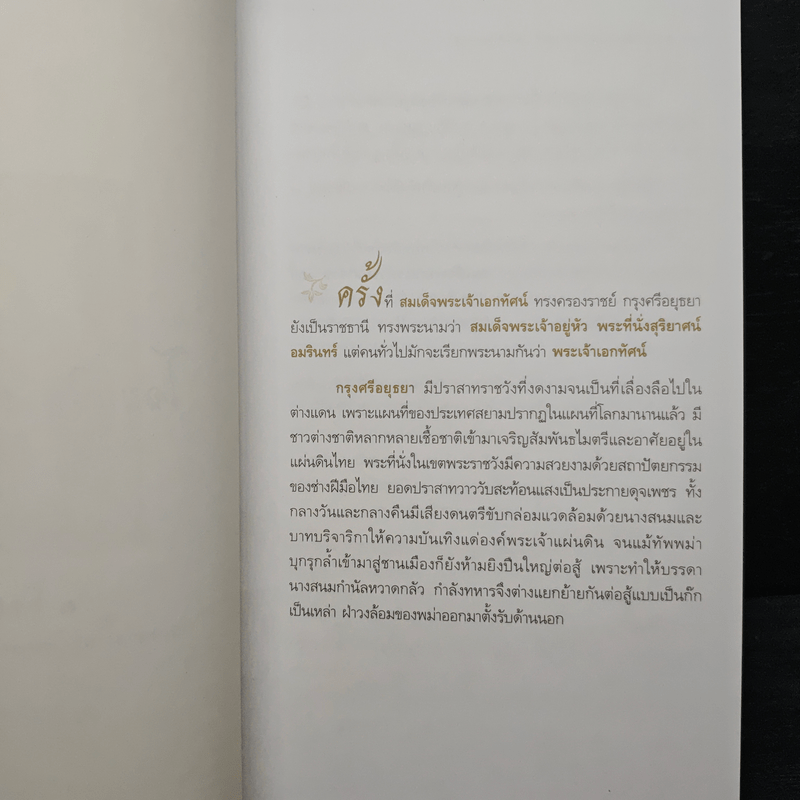 ครั้งที่ สมเด็จพระเจ้าเอกทัศน์ ทรงครองราชย์ กรุงศรีอยุธยา
ยังเป็นราชธานี ทรงพระนามว่า สมเด็จพระเจ้าอยู่หัว พระที่นั่งสุริยาศน์
อมรินทร์ แต่คนทั่วไปมักจะเรียกพระนามกันว่า พระเจ้าเอกทัศน์
กรุงศรีอยุธยา มีปราสาทราชวังที่งดงามจนเป็นที่เลื่องลือไปใน
ต่างแดน เพราะแผนที่ของประเทศสยามปรากฏในแผนที่โลกมานานแล้ว มี
ชาวต่างชาติหลากหลายเชื้อชาติเข้ามาเจริญสัมพันธไมตรีและอาศัยอยู่ใน
แผ่นดินไทย พระที่นั่งในเขตพระราชวังมีความสวยงามด้วยสถาปัตยกรรม
ของช่างฝีมือไทย ยอดปราสาทวาววับสะท้อนแสงเป็นประกายดุจเพชร ทั้ง
กลางวันและกลางคืนมีเสียงดนตรีขับกล่อมแวดล้อมด้วยนางสนมและ
บาทบริจาริกาให้ความบันเทิงแด่องค์พระเจ้าแผ่นดิน จนแม้ทัพพม่า
บุกรุกล้ำเข้ามาสู่ชานเมืองก็ยังห้ามยิงปืนใหญ่ต่อสู้ เพราะทำให้บรรดา
นางสนมกำนัลหวาดกลัว กำลังทหารจึงต่างแยกย้ายกันต่อสู้แบบเป็นก๊ก
เป็นเหล่า ฝ่าวงล้อมของพม่าออกมาตั้งรับด้านนอก